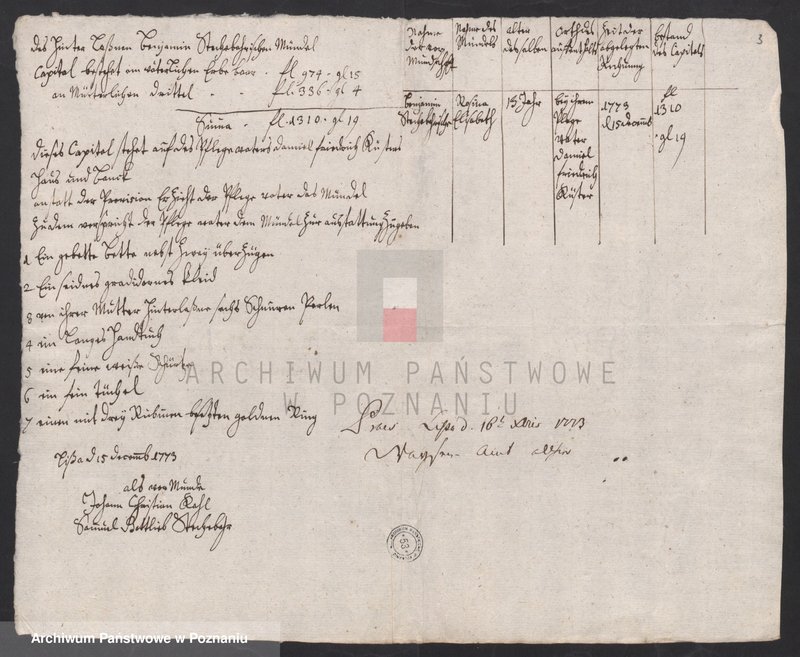 des hinter laßnen Benjamin Stechebahrischen Mündel
Capital bestehet an väterlichen Erbe baar . fl. 974 - gl 15
an Mütterlichen drittel - - fl. 336 - gl 4
Suma - fl. 1310 - gl 19
dieses Capital stehet auf des Pflegevaters daniel friedrich Küsters
Haus und Banck
anstatt der Provision Erzicht der Pflege vater das Mündel
zudem verspricht der Pflege vater dem Mündel zur ausstattung zugeben
1 Ein gebette Bette nebst Zwey überzügen
2 Ein seidnes kleid
3 von ihrer Mutter hinterlaßne sechs Schnuren Perlen
4 ein langes Handtuch
5 eine feine weiße Schürtze
6 ein fein Tüchel
7 einen mit drey Rubinen besetzten goldnen Ring
Lißa d 15 decemb 1773
als vor Munde
Johann Christian Kahl
Samuel Gottlieb Stechebahr
Nahme der vor Mundschafft
Nahme des Mündels
alter desselben
orth des auffenthalts
Zeit der abgelegten Rechnung
bestand des Capitals
Benjamin Stechebahrische
Rosina Elisabeth
15 Jahr
bey ihrem Pflege vater daniel friedrich Küster
1773 d 15 decemb
fl 1310 - gl 19
d. 16t Xbris 1773
Waysen Amt
3
53
ARCHIWUM PAŃSTWOWE
W POZNANIU
Archiwum Państwowe w Poznaniu